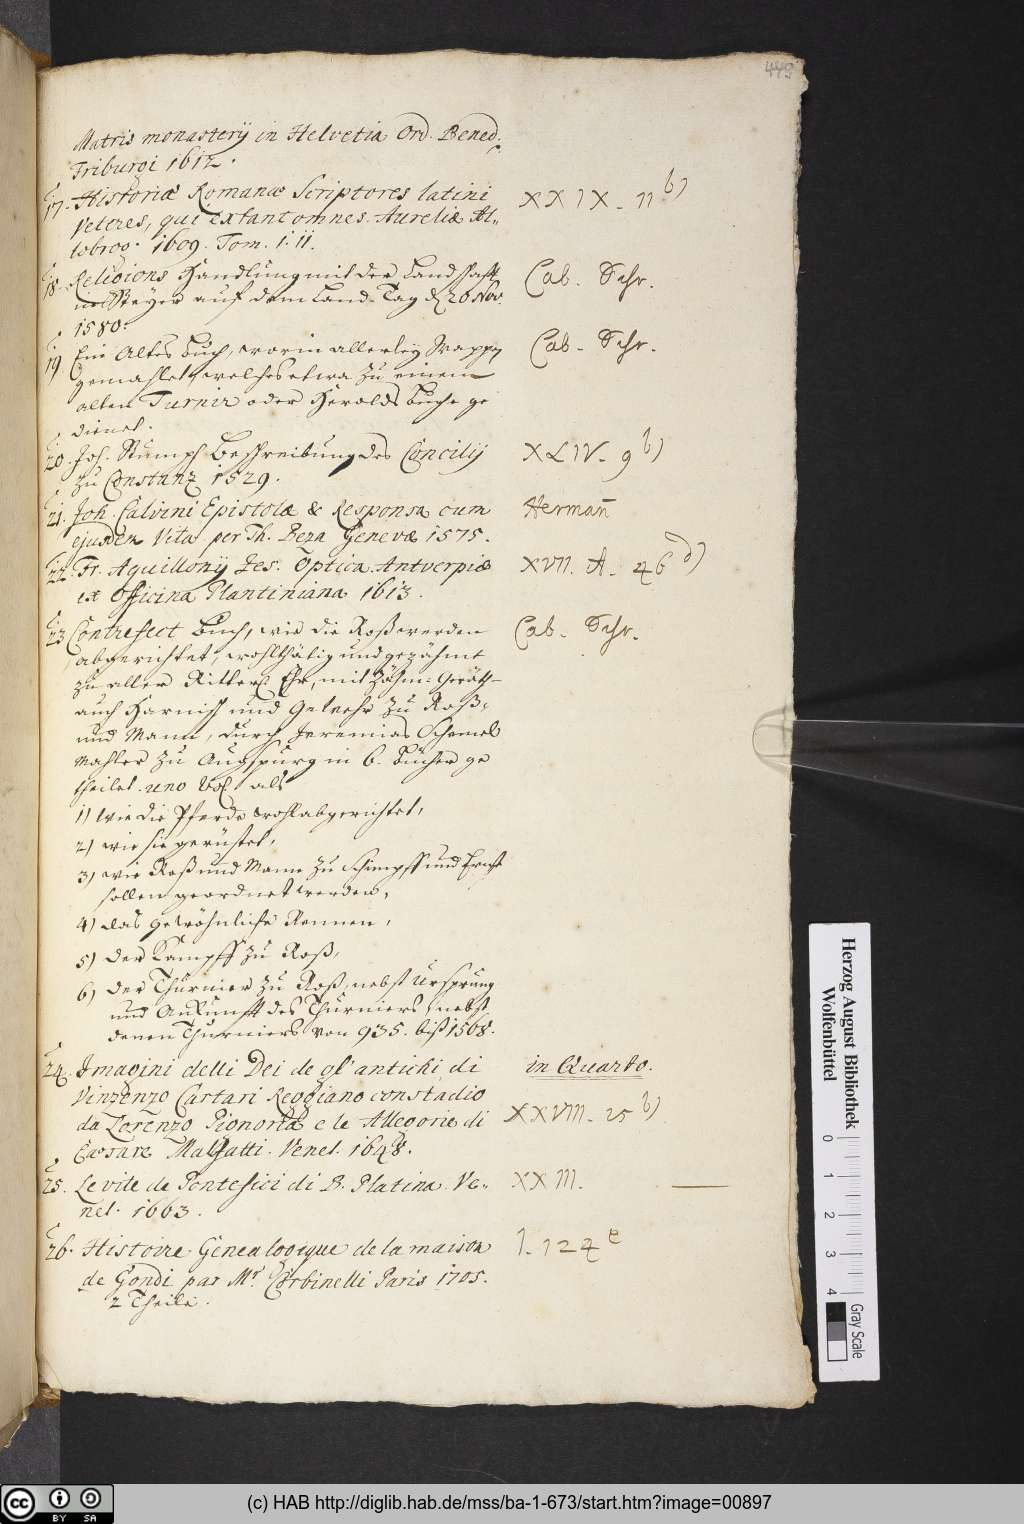 449
Matris monasterij in Helvetia Ord. Bened.
Friburgi 1612.
17. Historiæ Romanæ Scriptores latini
Veteres, qui extant omnes. Aureliæ Al-
lobrog. 1609. Tom. I. II.
XXIX. 11 b)
18. Religions Handlung mit der Landschafft
in Steyer auf dem Land-Tag d. 20 Nov.
1580.
Cab. Schr.
19. Ein Altes Buch, worin allerley Wappen
gemahlet, welches etwa zu einem
alten Turnir oder Herolds Buche ge
dienet.
Cab. Schr.
20. Joh. Stumpf Beschreibung des Concilij
zu Constanz 1529.
XLIV. 9 b)
21. Joh. Calvini Epistolæ & Responsa cum
ejusdem Vita per Th. Beza Genevæ 1575.
Hermañ
22. Fr. Aquillonij Jes. Optica. Antverpiæ
ex Officina Plantiniana 1613.
XVII. A. 46 d)
23. Contrefect Buch, wie die Roß werden
abgerichtet, wohlthätig und gezähmt
zu aller Ritterl. Ehr, mit Zähm-Geräth
auch Harnisch und Gewehr zu Roß
und Mann, durch Jeremias Schemel
Mahler zu Augspurg in 6. Bücher ge
theilet. uno Vol. als
Cab. Schr.
1) wie die Pferde wohl abgerichtet,
2) wie sie gerüstet,
3) wie Roß und Mann zu Schimpff und Ernst
sollen geordnet werden,
4) das gewöhnliche Rennen,
5) der Kampff zu Roß,
6) der Thurnier zu Roß, nebst Ursprung
und Ankunfft des Thurniers, nebst
denen Thurniers von 935. biß 1568.
24. Imagini delli Dei de gl' antichi di
Vinzenzo Cartari Reggiano con stadio
da Lorenzo Pignoria e le Allegorie di
Cæsare Malfatti. Venet. 1648.
in Quarto.
XXVIII. 25 b)
25. Le vite de Pontefici di B. Platina. Ve-
net. 1663.
XXIII.
26. Histoire Genealogique de la maison
de Gondi par Mr. Corbinelli Paris 1705.
2 Theile.
I. 124 e
Herzog August Bibliothek
Wolfenbüttel
0 1 2 3 4
Gray Scale
cc BY SA
(c) HAB http://diglib.hab.de/mss/ba-1-673/start.htm?image=00897